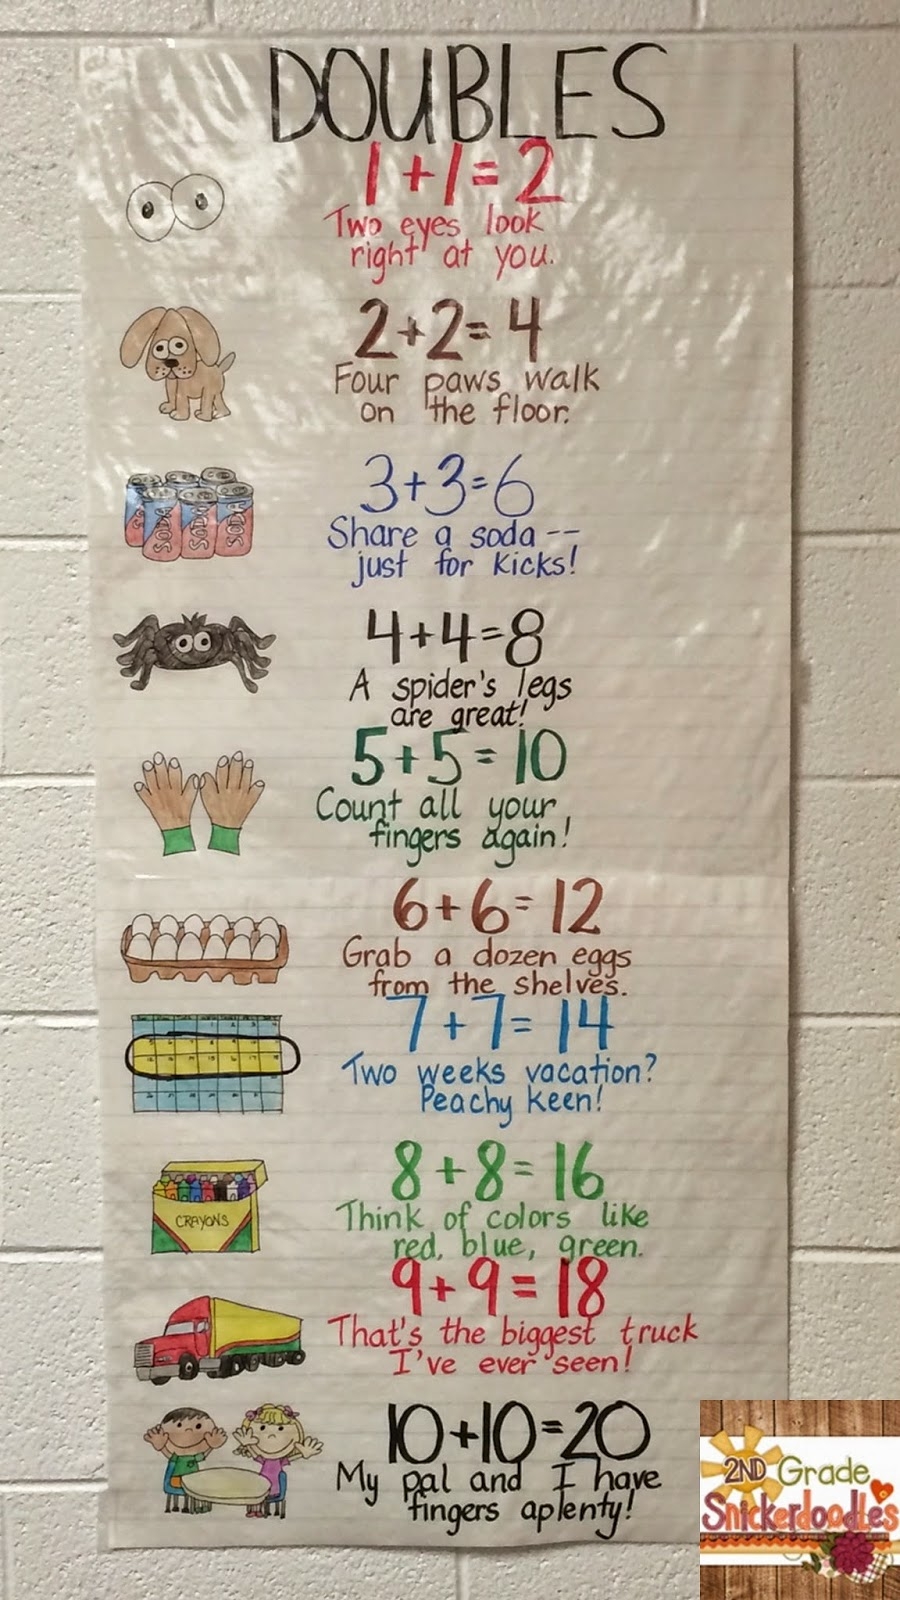 DOUBLES
1+1=2
Two eyes look
right at you.
2+2=4
Four paws walk
on the floor.
SODA SODA SODA
3+3=6
Share a soda --
just for kicks!
4+4=8
A spider's legs
are great!
5+5=10
Count all your
fingers again!
6+6=12
Grab a dozen eggs
from the shelves.
7+7=14
Two weeks vacation?
Peachy keen!
8+8=16
CRAYONS
Think of colors like
red, blue, green.
9+9=18
That's the biggest truck
I've ever seen!
10+10=20
My pal and I have
fingers aplenty!
2ND Grade
Snickerdoodles